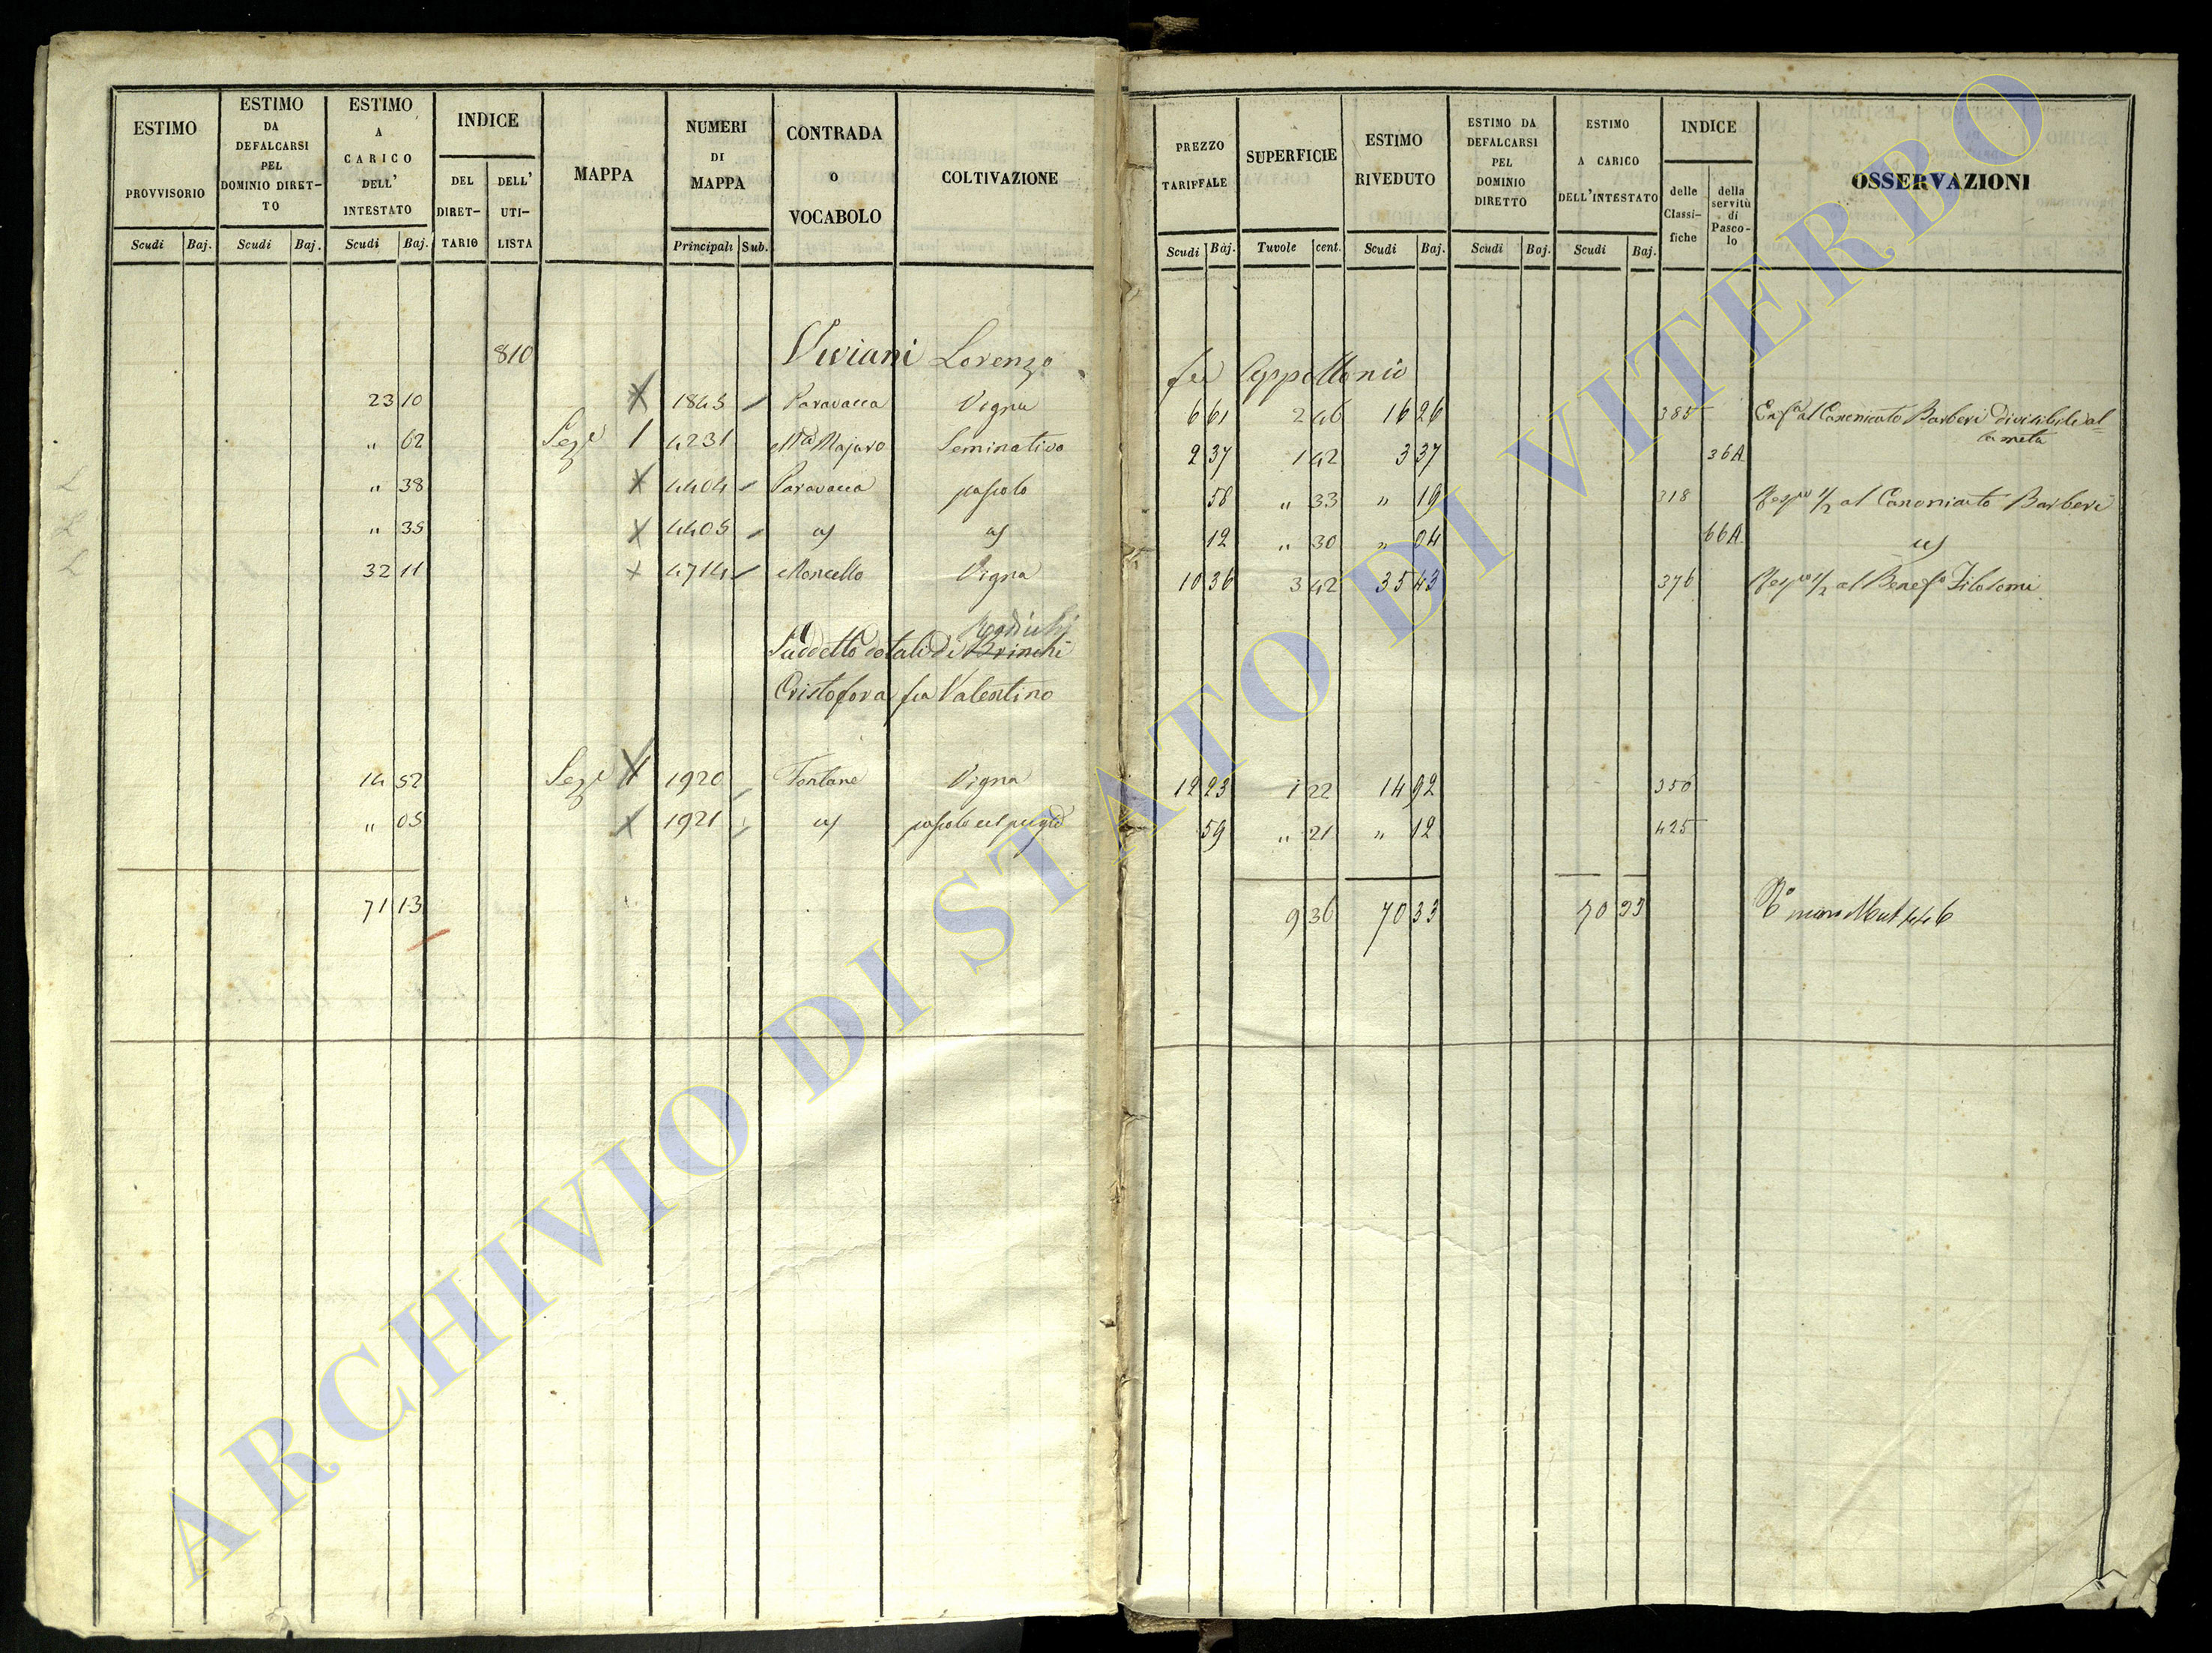 ESTIMO PROVVISORIO Scudi Baj.
ESTIMO DA DEFALCARSI PEL DOMINIO DIRET- TO Scudi Baj.
ESTIMO A CARICO DELL' INTESTATO Scudi Baj.
INDICE DEL DIRET- TARIO DELL' UTI- LISTA
MAPPA
NUMERI DI MAPPA Principali Sub.
CONTRADA O VOCABOLO
COLTIVAZIONE
PREZZO TARIFFALE Scudi Baj.
SUPERFICIE Tavole cent.
ESTIMO RIVEDUTO Scudi Baj.
ESTIMO DA DEFALCARSI PEL DOMINIO DIRETTO Scudi Baj.
ESTIMO A CARICO DELL'INTESTATO Scudi Baj.
INDICE delle Classi- fiche della servitù di Pasco- lo
OSSERVAZIONI
810 Viviani Lorenzo fu Appollonio
23 10 1843 Paravacca Vigna 6 61 2 46 16 26 385 al Canonicato Barberi divisibile al- la metà
" 62 Sez.e 1 4231 Majuro Seminativo 2 37 1 42 3 37 36A
" 38 4404 Paravacca pascolo 58 " 33 " 19 318 1/2 al Canonicato Barberi
" 35 4405 us us 12 " 30 " 04 66A us
32 11 4714 Moncello Vigna 10 36 3 42 35 43 376 1/2 al Benef.o Filosomi
Suddetto dotali di Brinchi
Cristofora fu Valentino
14 52 Sez.e 1 1920 Fontane Vigna 12 23 1 22 14 92 350
" 05 1921 us pascolo 59 " 21 " 12 425
71 13 9 36 70 33 70 33 446
ARCHIVIO DI STATO DI VITERBO